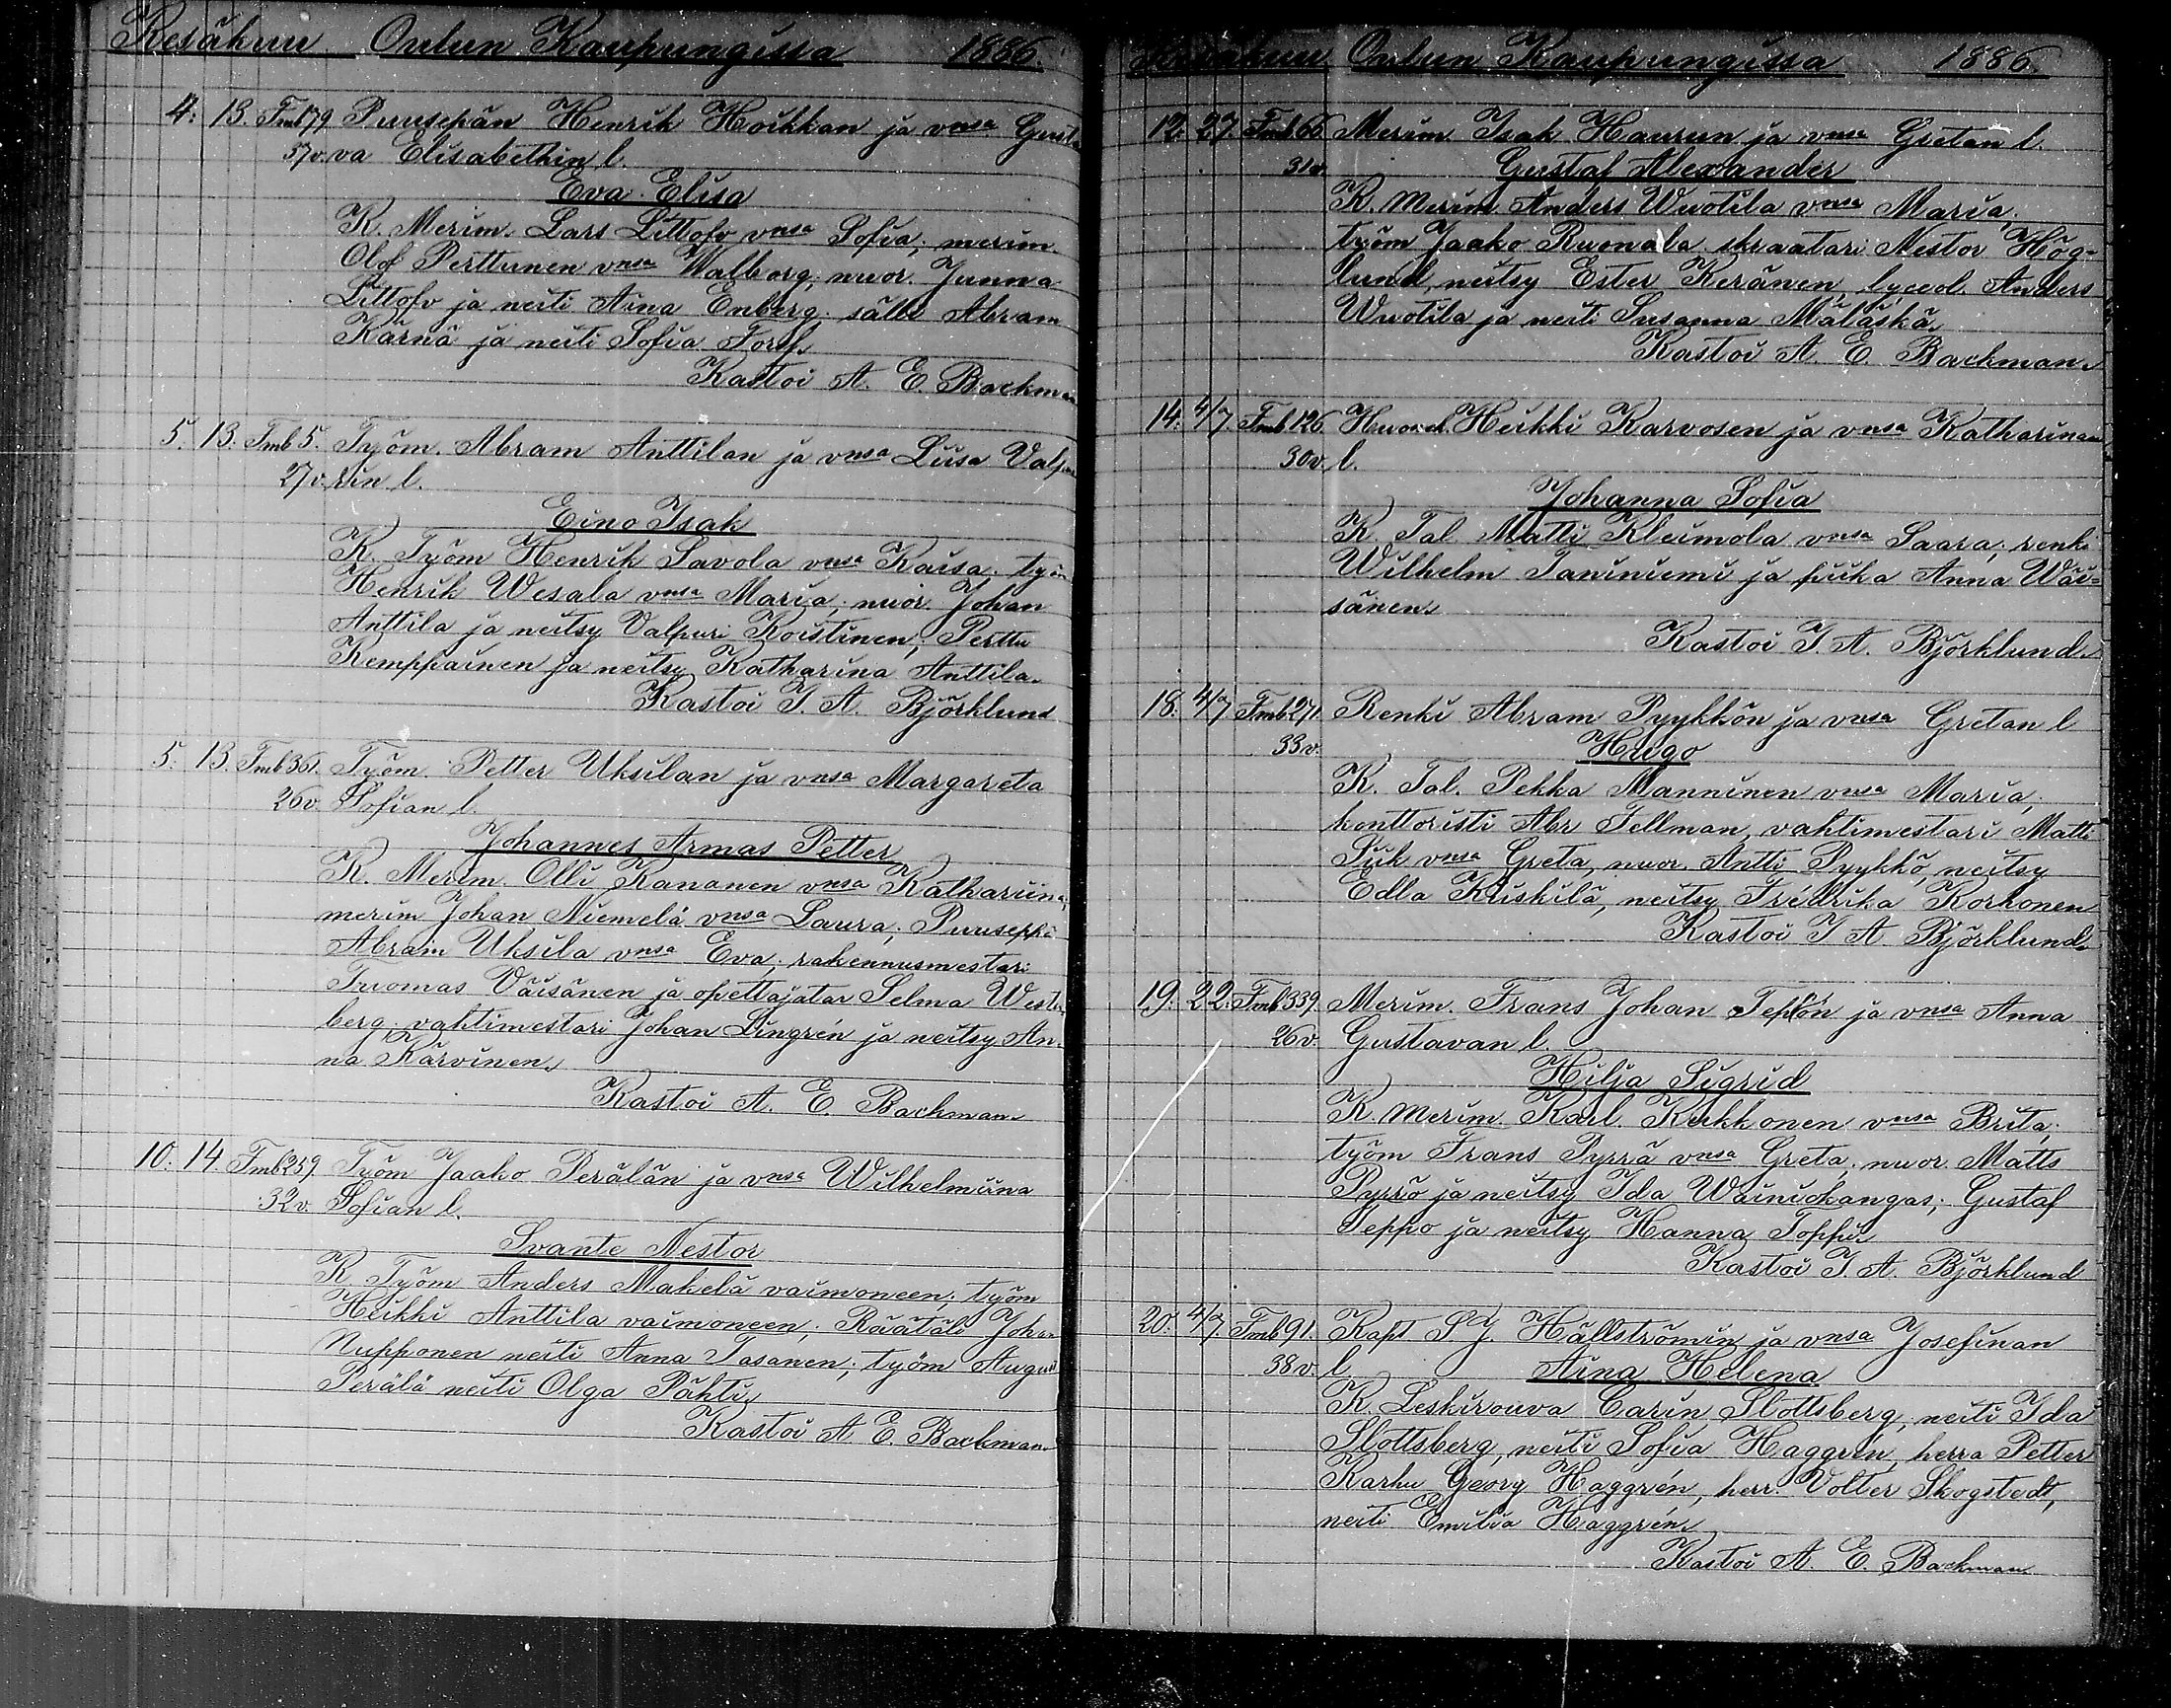 Kesäkuu Oulun Kaupungissa 1886.
4. 13. Tmb179 Puusepän Henrik Hoikkan ja vnsa Gusta
37v. va Elisabethin l.
Eva Elisa
K. Merim. Lars Littofv vnsa Sofia, merim.
Olof Perttunen vnsa Walborg, nuor. Junna
Littofv ja neiti Aina Enberg. sälli Abram
Kärnä ja neiti Sofia
Kastoi A. E. Backman
5. 13. Tmb 5. Työm. Abram Anttilan ja vnsa Liisa Valpu
27v. rin l.
Eino Isak
K. Työm Henrik Savola vnsa Kaisa, työm
Henrik Wesala vnsa Maria, nuor. Johan
Anttila ja neitsy Valpuri Koistinen, Perttu
Kemppainen ja neitsy Katharina Anttila.
Kastoi J. A. Björklund
5. 13. Tmb361. Työm. Petter Uksilan ja vnsa Margareta
26v. Sofian l.
Johannes Armas Petter
K. Merim. Olli Kananen vnsa Kathariina,
merim Johan Niemelä vnsa Laura; Puuseppä
Abram Uksila vnsa Eva, rakennusmestari
Tuomas Väisänen ja opettajatar Selma West-
berg, vahtimestari Johan Lingrén ja neitsy An-
na Karvinen.
Kastoi A. E. Backman
10. 14. Tmb259. Työm Jaako Perälän ja vnsa Wilhelmiina
32v. Sofian l.
Svante Nestor
K. Työm Anders Makelä vaimoneen, työm
Heikki Anttila vaimoneen, Räätäli Johan
Nupponen neiti Anna Tasanen, työm August
Perälä neiti Olga Pähti,
Kastoi A E. Backman
Kesäkuu Oulun Kaupungissa 1886.
12. 27. Tmb66 Merim. Isak Haurun ja vnsa Gretan l.
31v. Gustaf Alexander
K. merim Anders Wuotila vnsa Maria,
työm Jaako Ruonala skraatari Nestor Hög-
lund, neitsy Ester Keränen lyceol. Anders
Wuotila ja neiti Susanna Mälaskä.
Kastoi A. E. Backman.
14. 4/7 Tmb126 Heikki Karvosen ja vnsa Katharinan
30v. l.
Johanna Sofia
K. Tal. Matti Kleimola vnsa Saara, renki
Wilhelm Taniniemi ja piika Anna Wäi-
sänen.
Kastoi J. A. Björklund.
18. 4/7 Tmb271 Renki Abram Pyykkön ja vnsa Gretan l
33v. Hugo
K. Tal. Pekka Manninen vnsa Maria,
konttoristi Abr Fellman, vahtimestari Matti
Siik vnsa Greta, nuor. Antti Pyykkö, neitsy
Edla Kiiskilä, neitsy Fredrika Korhonen
Kastoi J A Björklund.
19. 22. Tmb339 Merim. Frans Johan Tepon ja vnsa Anna
26v. Gustavan l.
Hilja Sigrid
K. merim. Karl Kukkonen vnsa Brita,
työm Frans Pyrrä vnsa Greta, nuor. Matts
Pyrrö ja neitsy Ida Wainichangas; Gustaf
Teppo ja neitsy Hanna Toppi
Kastoi J. A. Björklund
20. 4/7. Tmb91. Kapt S J. Hällströmin ja vnsa Josefinan
38v. l. Aina Helena
K. Leskirouva Carin Slottsberg, neiti Ida
Slottsberg, neiti Sofia Haggrén, herra Petter
Karhu Georg Haggrén, herr. Volter Skogstedt,
neiti Emilia Haggrén,
Kastoi A. E. Backman